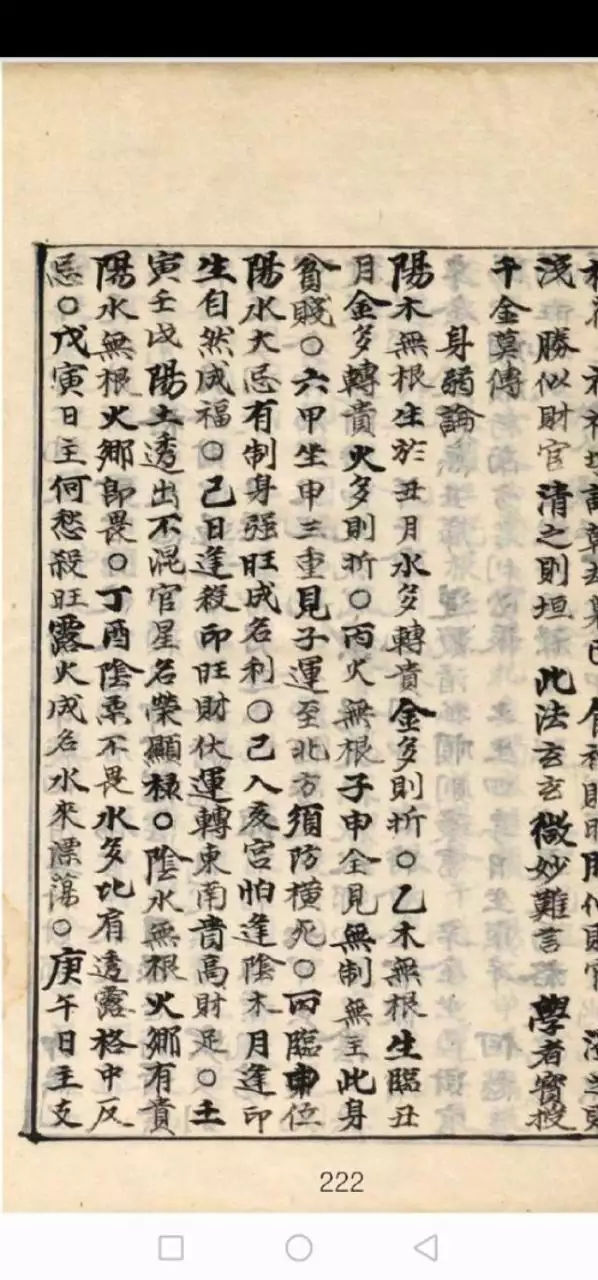 淺勝似財官清之則垣此法玄玄微妙難言學者實授
千金莫傳
身弱論
陽木無根生於丑月水多轉貴金多則折○乙木無根生臨丑
月金多轉貴火多則折○丙火無根子申全見無制無主此身
貧賤○六甲坐申三重見子運至北方須防橫死○丙臨申位
陽水大忌有制身强旺成名利○己入亥宮怕逢陰木月逢印
生自然成福○己日逢殺印旺財伏運轉東南貴高財足○土
寅壬戌陽土透出不混官星名榮顯祿○陰水無根火鄉有貴
陽水無根火鄉即畏○丁酉陰柔不畏水多比有透露格中反
忌○戊寅日主何愁殺旺露火成名水來漂蕩○庚午日主支
222